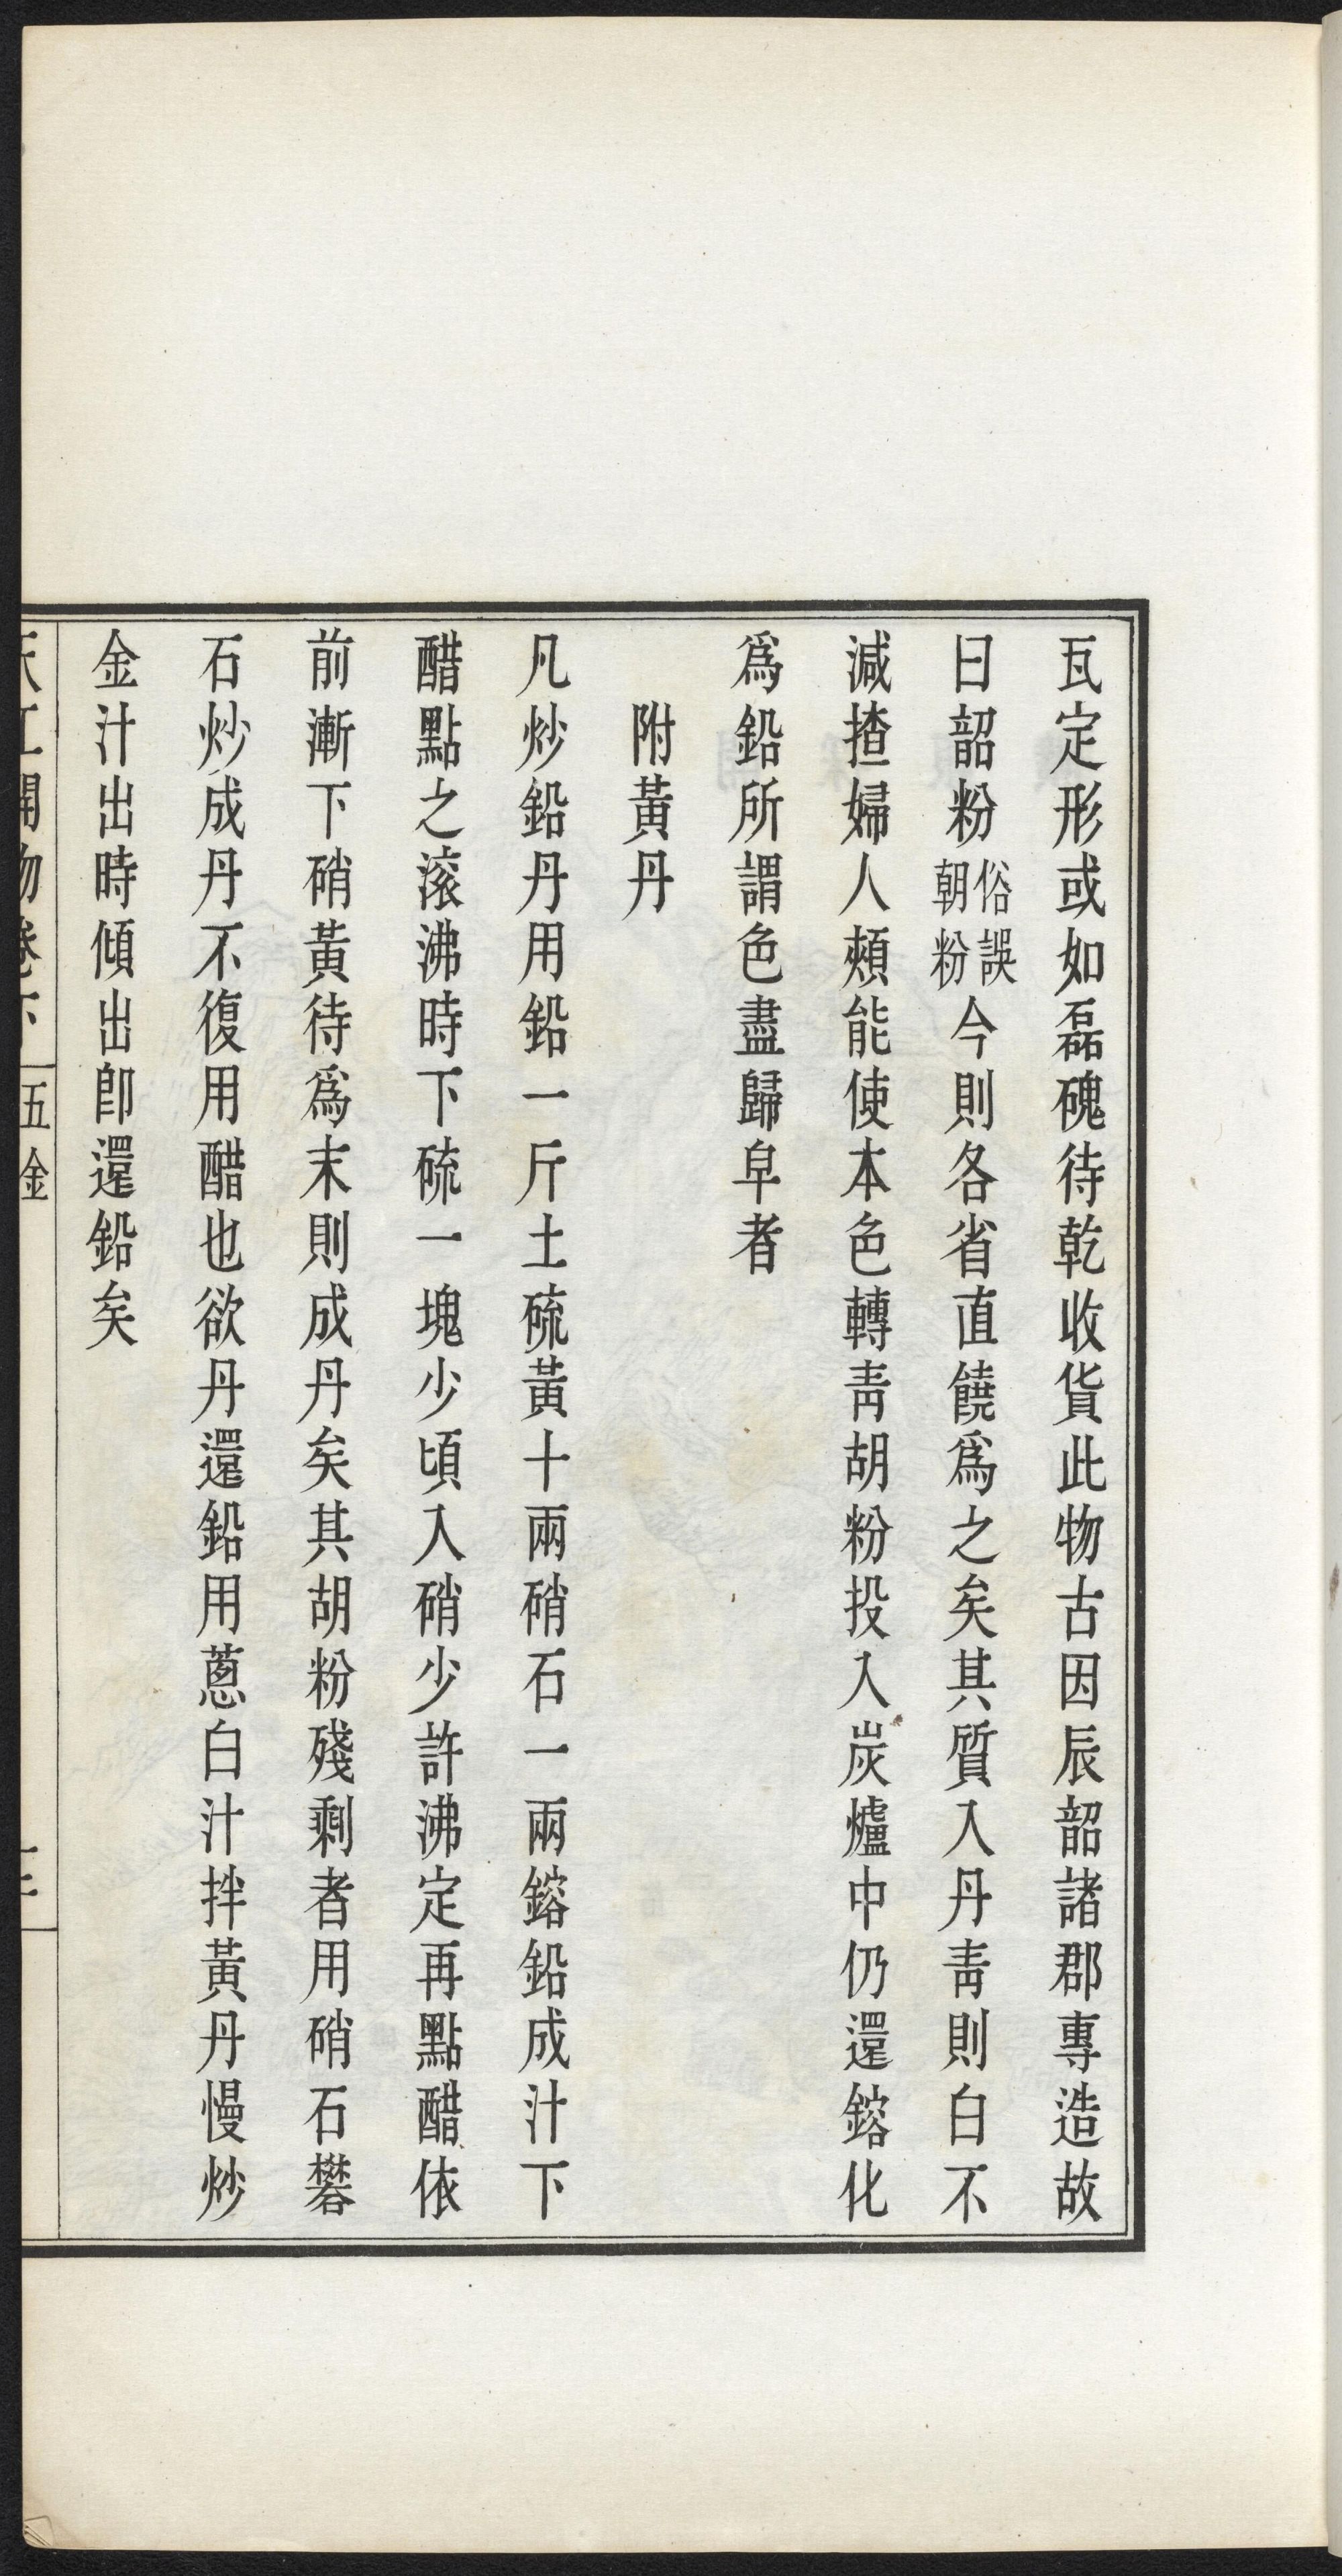 瓦定形或如磊磈待乾收貨此物古因辰韶諸郡專造故
曰韶粉俗誤朝粉今則各省直饒爲之矣其質入丹靑則白不
減揸婦人頰能使本色轉靑胡粉投入炭爐中仍還鎔化
爲鉛所謂色盡歸皁者
附黃丹
凡炒鉛丹用鉛一斤土硫黃十兩硝石一兩鎔鉛成汁下
醋點之滚沸時下硫一塊少頃入硝少許沸定再點醋依
前漸下硝黃待爲末則成丹矣其胡粉殘剩者用硝石礬
石炒成丹不復用醋也欲丹還鉛用蔥白汁拌黃丹慢炒
金汁出時傾出卽還鉛矣
天工開物卷下
五金